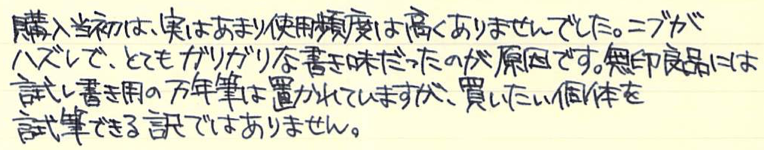 購入当初は、実はあまり使用頻度は高くありませんでした。ニブが
ハズレで、とてもガリガリな書き味だったのが原因です。無印良品には
試し書き用の万年筆は置かれていますが、買いたい個体を
試筆できる訳ではありません。